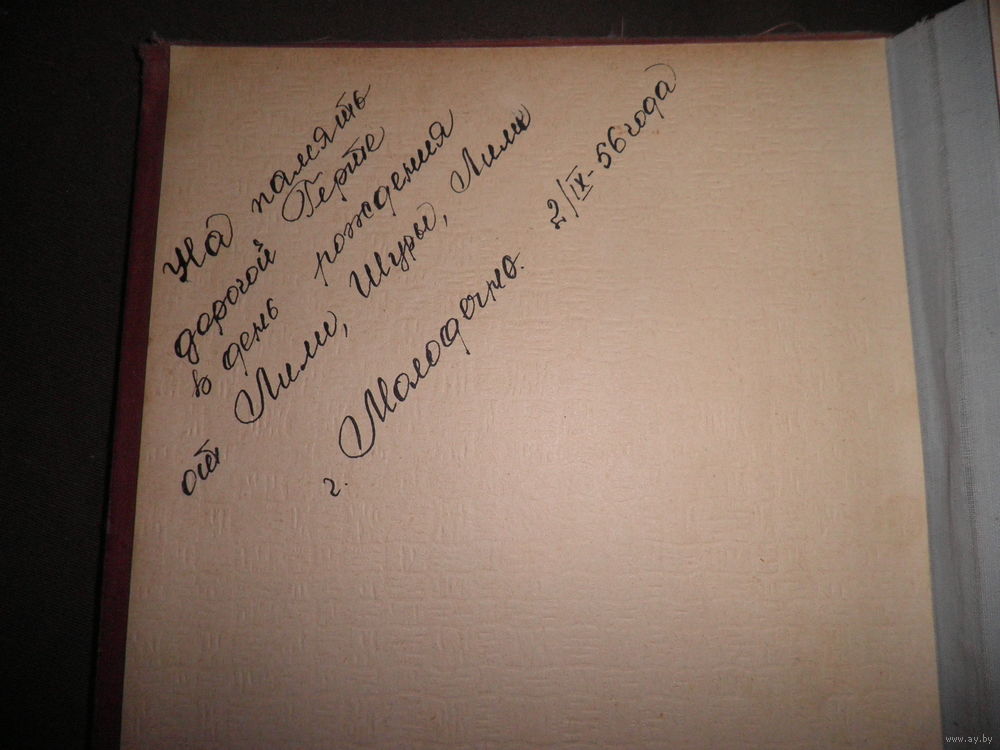 На память
дорогой Герте
в день рождения
от Лили, Шуры, Лили
г. Молодечно. 2/IX-56 года
www.ay.by